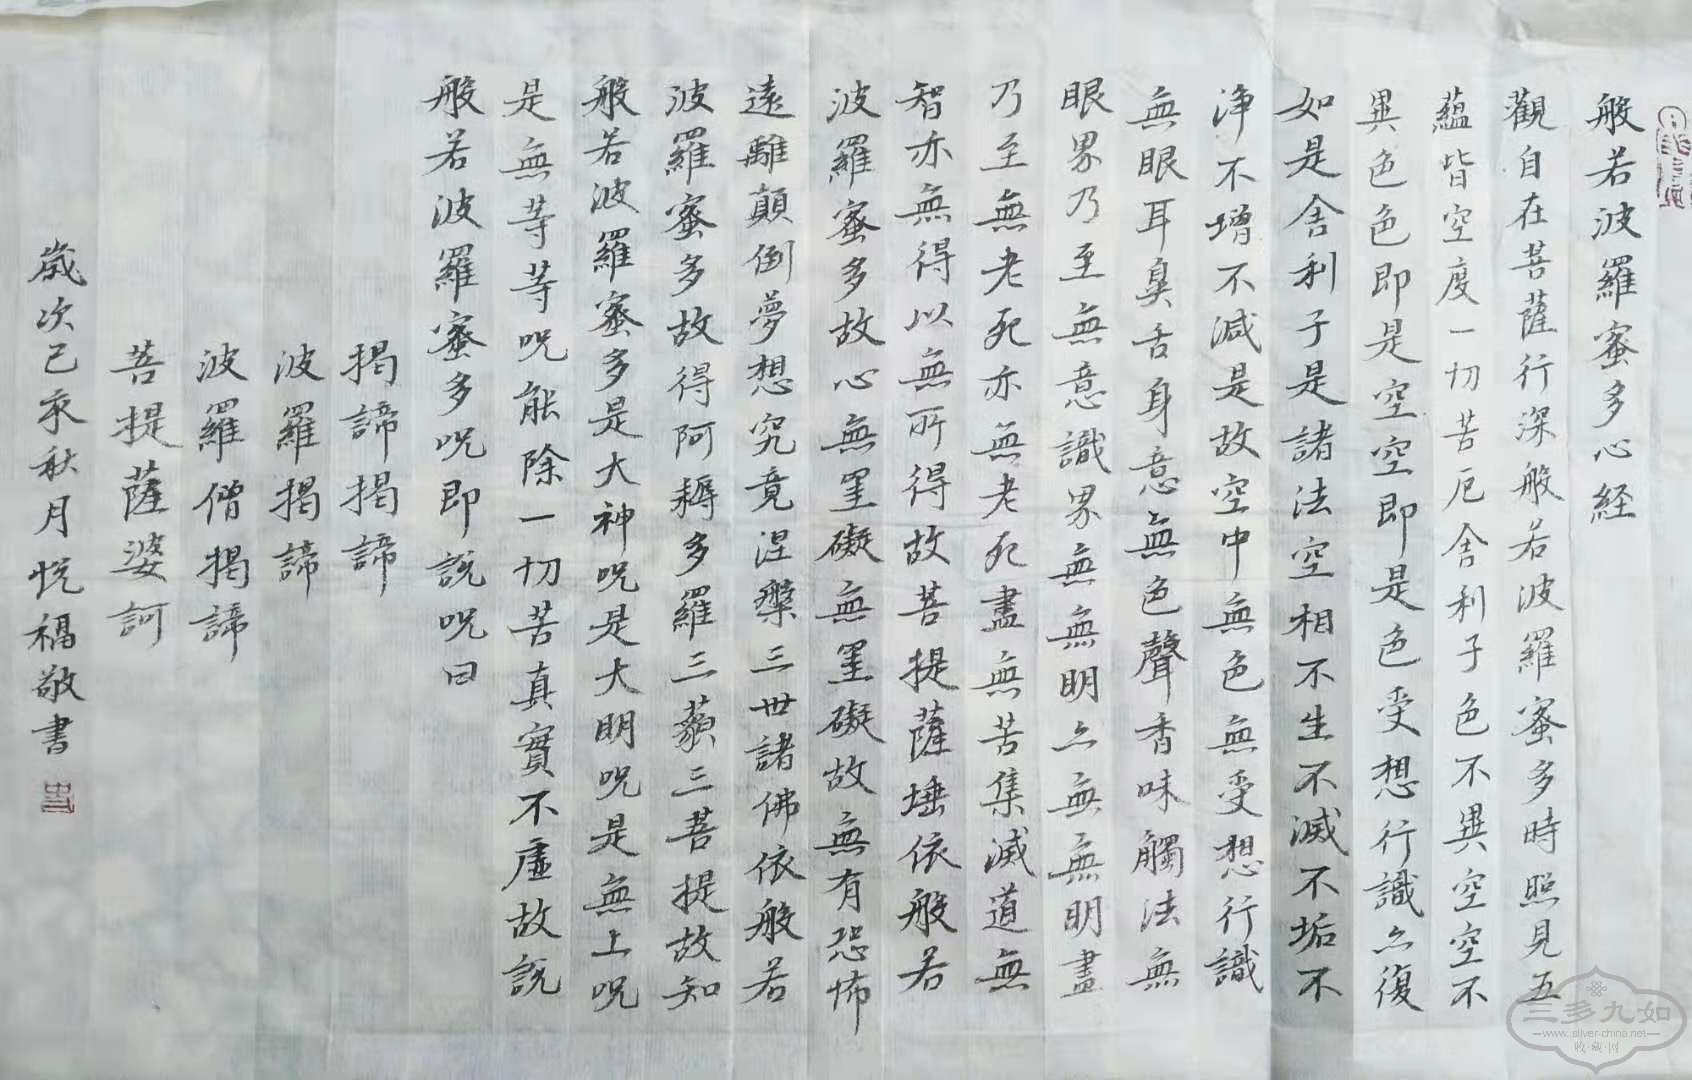 般若波羅蜜多心経
觀自在菩薩行深般若波羅蜜多時照見五
蘊皆空度一切苦厄舍利子色不異空空不
異色色即是空空即是色受想行識亦復
如是舍利子是諸法空相不生不滅不垢不
淨不增不減是故空中無色無受想行識
無眼耳鼻舌身意無色聲香味觸法無
眼界乃至無意識界無無明亦無無明盡
乃至無老死亦無老死盡無苦集滅道無
智亦無得以無所得故菩提薩埵依般若
波羅蜜多故心無罣礙無罣礙故無有恐怖
遠離顛倒夢想究竟涅槃三世諸佛依般若
波羅蜜多故得阿耨多羅三藐三菩提故知
般若波羅蜜多是大神呪是大明呪是無上呪
是無等等呪能除一切苦真實不虛故說
般若波羅蜜多呪即說呪曰
揭諦揭諦
波羅揭諦
波羅僧揭諦
菩提薩婆訶
歲次己亥秋月悦福敬書
三多九如
www.silver-china.net
收·藏·网